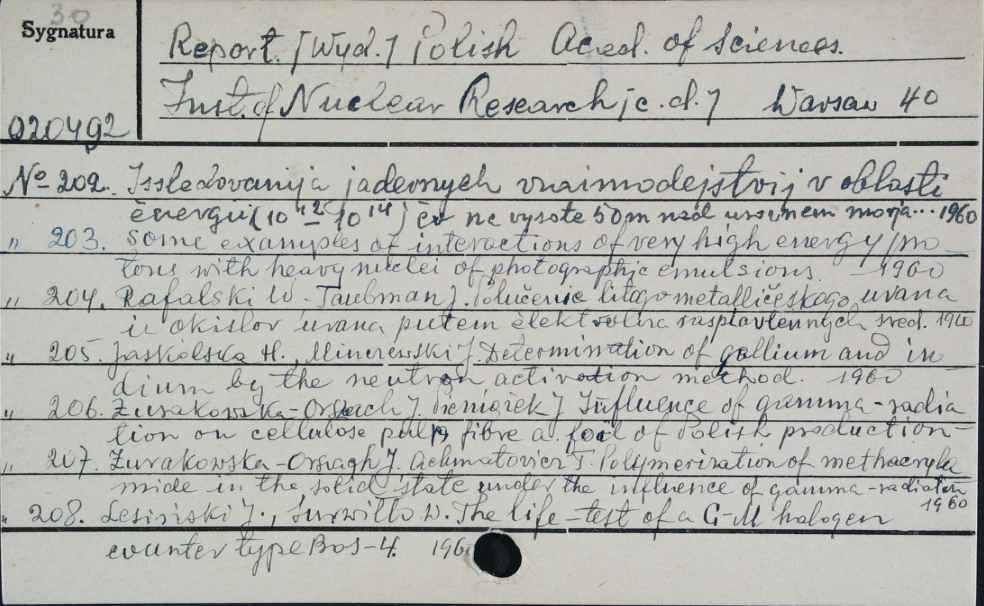 30
Sygnatura
Report. [Wyd.] Polish Acad. of Sciences.
Inst. of Nuclear Research [c.d.] Warsaw 40
020492
No 202. Issledovanija jadernych vzaimodejstvij v oblasti
ènergii (10 12 - 10 14) èv na vysote 50 m nad urovnem morja... 1960
" 203. Some examples of interactions of very high energy pro-
tons with heavy nuclei of photographic emulsions. 1960
" 204. Rafalski W. Taubman J. Polučenie litogo metalličeskogo urana
iz okislov urana putem èlektroliza rasplavlennych sred. 1960
" 205. Jaskólska H., Minczewski J. Determination of gallium and in-
dium by the neutron activation method. 1960
" 206. Żurakowska-Orszach J. J. Influence of gamma-radia
tion on cellulose pulp, fibre a. foil of Polish production-
" 207. Żurakowska-Orszagh J. Achmatowicz T. Polymerization of methacryla
mide in the solid state under the influence of gamma-radiation
1960
" 208. Lesiński J., Surwiłło W. The life-test of a G-M halogen
counter type BoS-4. 196